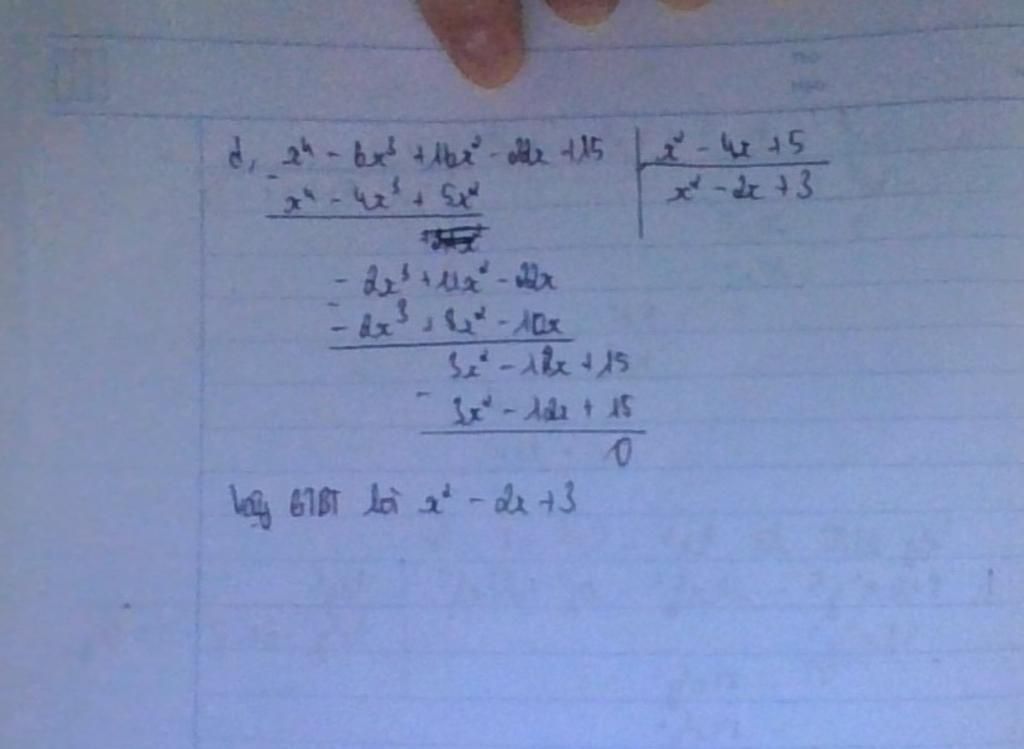 d, x⁴ - 6x³ + 16x² - 22x + 15 | x² - 4x + 5
- x⁴ - 4x³ + 5x² | x² - 2x + 3
- 2x³ + 11x² - 22x
- - 2x³ + 8x² - 10x
3x² - 12x + 15
- 3x² - 12x + 15
0
Vậy GTBT là x² - 2x + 3